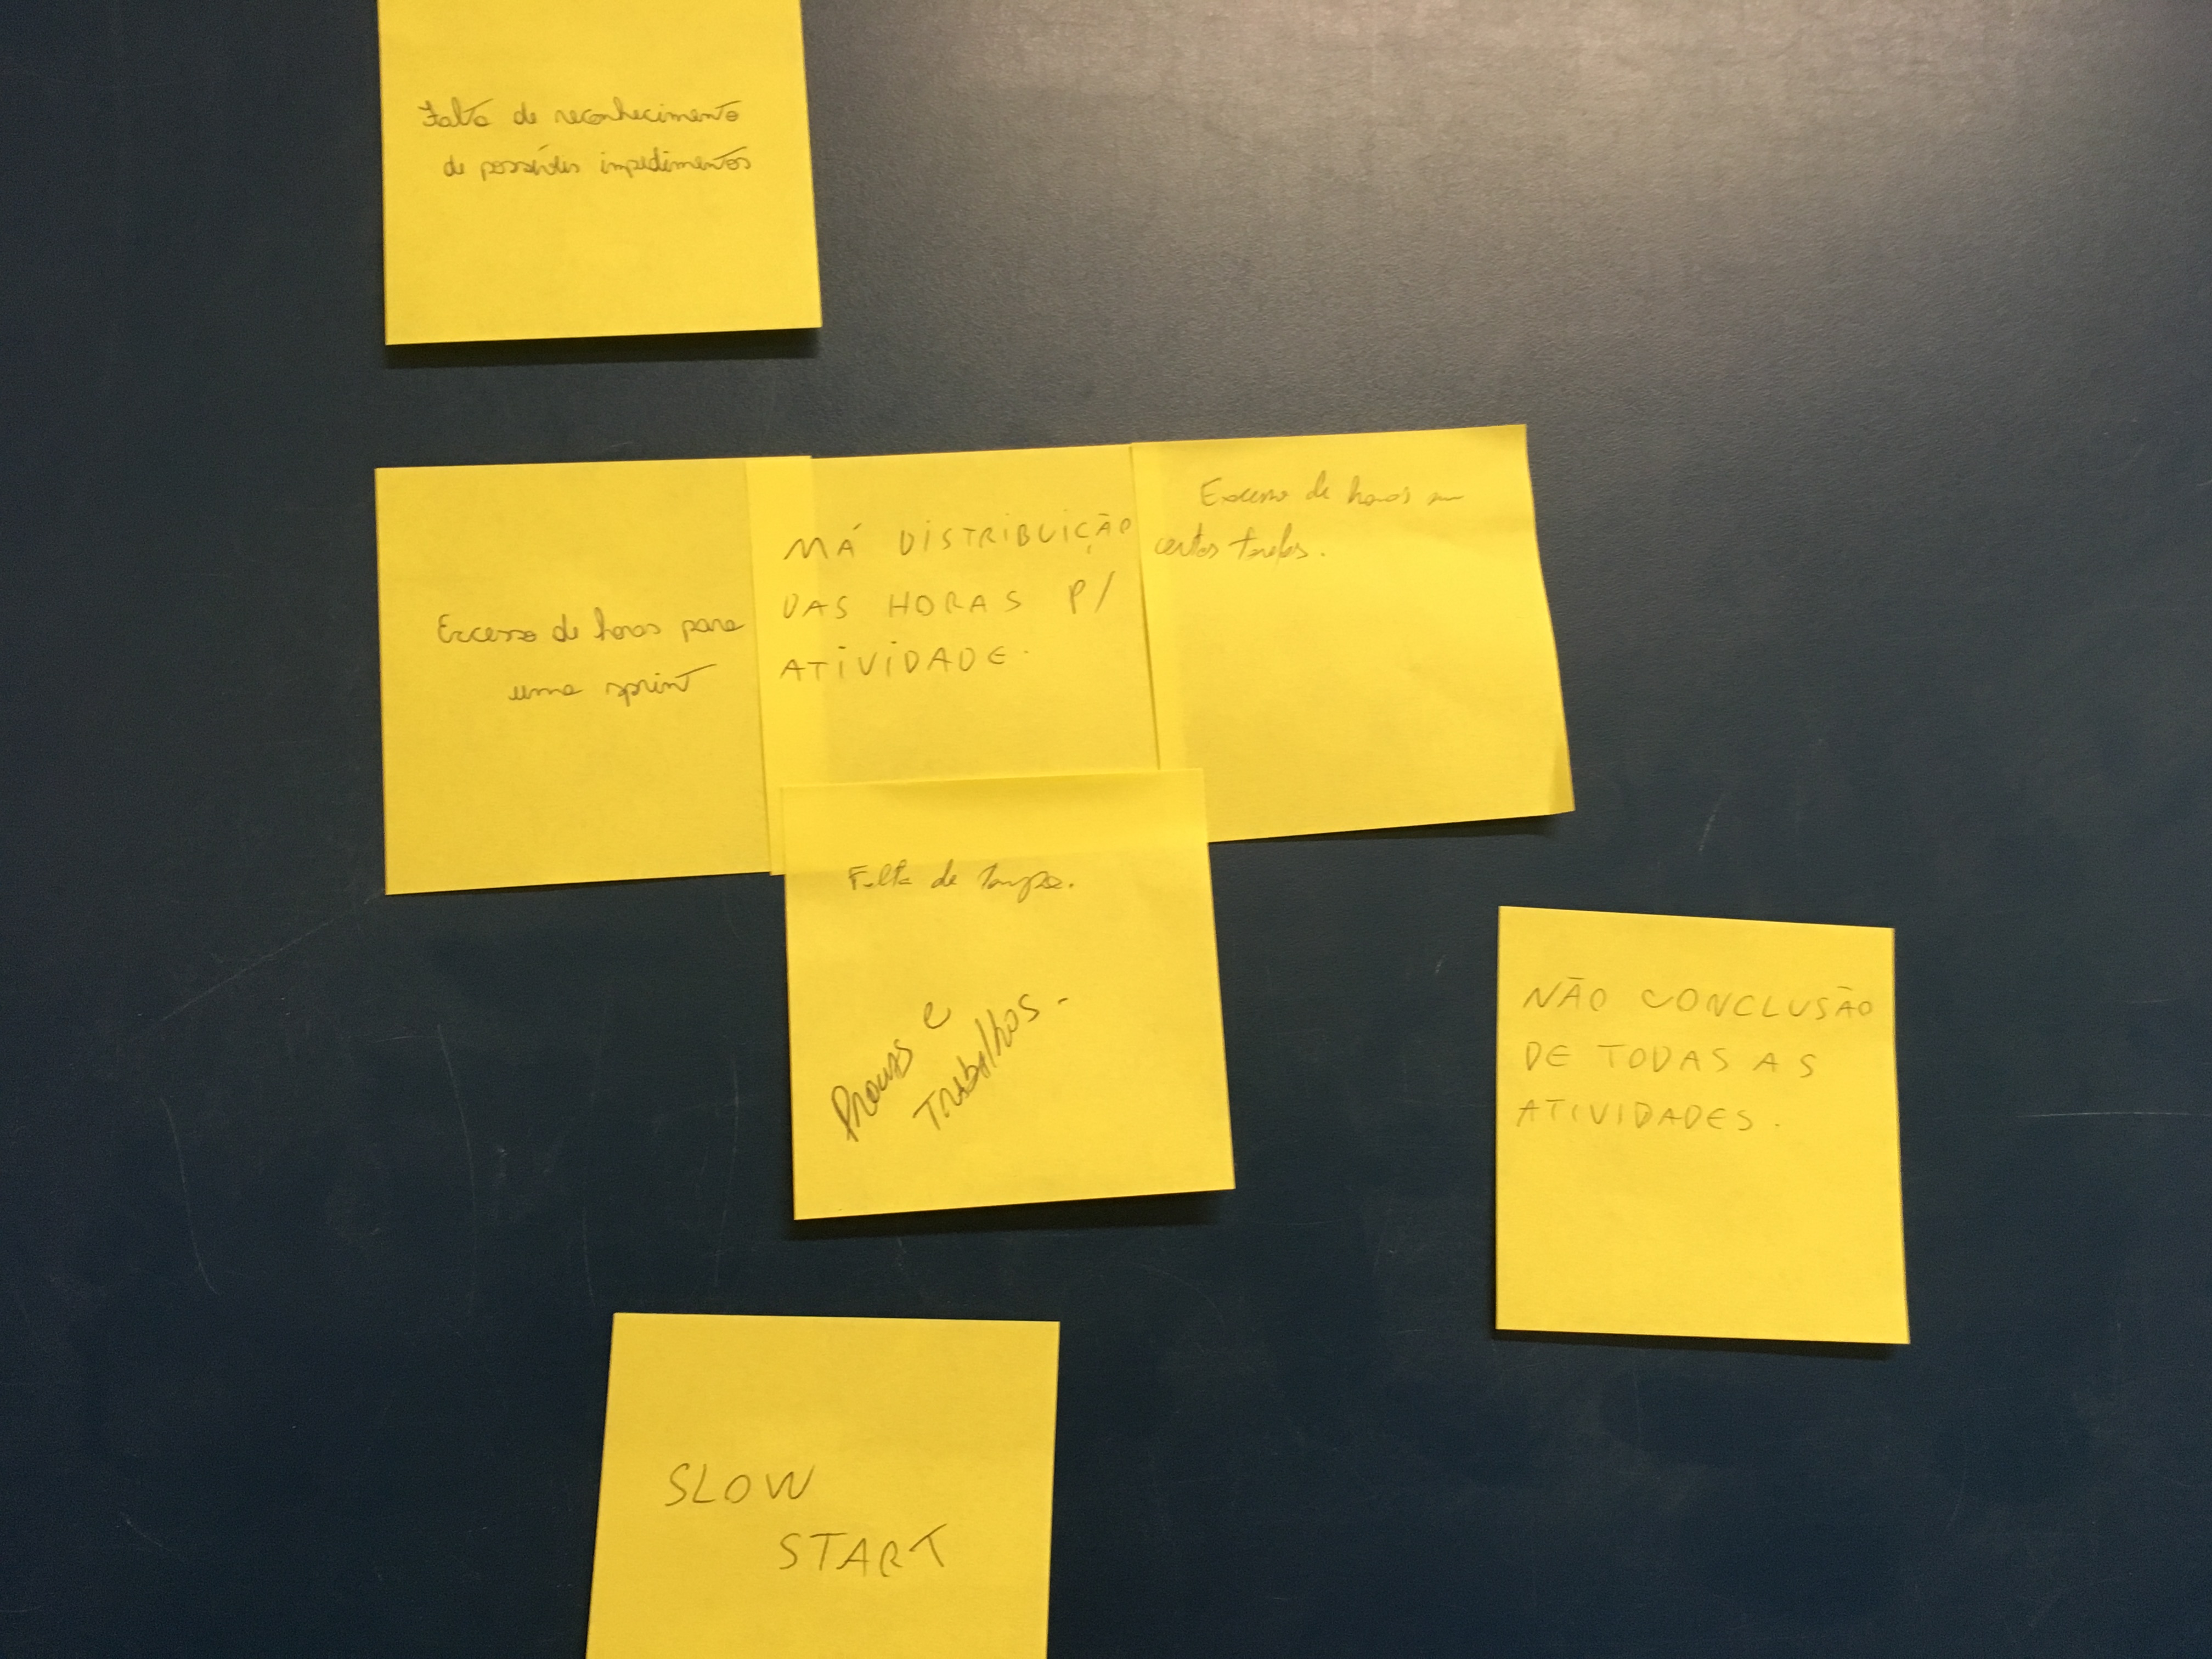 Falta de reconhecimento
de possíveis impedimentos
Excesso de horas para
uma sprint
MÁ DISTRIBUIÇÃO
DAS HORAS P/
ATIVIDADE.
Excesso de horas em
certas tarefas.
Falta de tempo.
Provas e
Trabalhos.
NÃO CONCLUSÃO
DE TODAS AS
ATIVIDADES.
SLOW
START